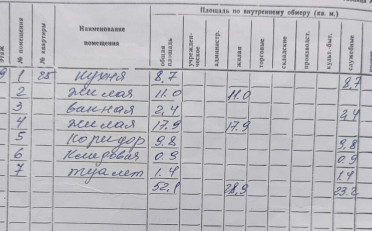 Площадь по внутреннему обмеру (кв. м.)
Этаж № помещения № квартиры Наименование помещения общая площадь учрежден-ческие администр. жилая торговые складские производст. культ.-быт. служебные
9 1 25 Кухня 8,7 8,7
2 Жилая 11.0 11.0
3 ванная 2,4 2,4
4 Жилая 17.9 17.9
5 Коридор 9.8 9,8
6 Кладовая 0.9 0.9
7 туалет 1.4 1.4
52,1 28,9 23.2